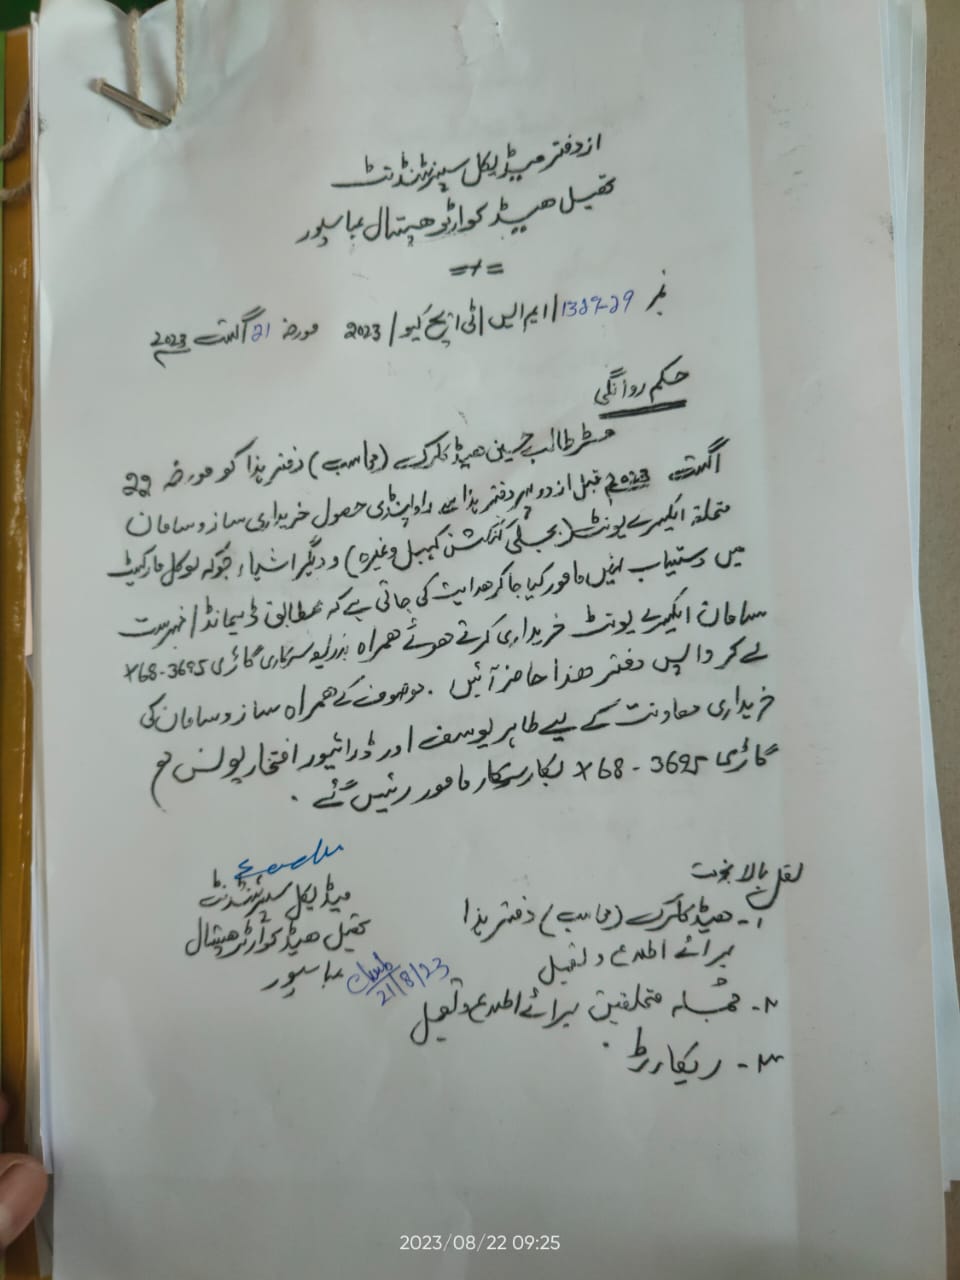 از دفتر میڈیکل سپرنٹنڈنٹ
تحصیل ھیڈ کوارٹر ھسپتال عباسپور
=/=
نمبر 1327-29/ایم ایس/ٹی ایچ کیو/2023 مورخہ 21 اگست 2023
حکم روانگی
مسٹر طالب حسین ھیڈ کلرک (محاسب) دفتر ہذا کو مورخہ 22
اگست 2023 قبل از دوپہر دفتر ہذا سے راولپنڈی حصول خریداری ساز و سامان
متعلقہ ایکسرے یونٹ (بجلی کنکشن کیبل وغیرہ) و دیگر اشیاء جوکہ لوکل مارکیٹ
میں دستیاب نہیں مامور کیا جا کر ھدایت کی جاتی ہے کہ بمطابق ڈیمانڈ/فہرست
سامان ایکسرے یونٹ خریداری کرتے ھوئے ھمراہ بذریعہ سرکاری گاڑی X68-3695
لے کر واپس دفتر ھذا حاضر آئیں۔ موصوف کے ھمراہ ساز و سامان کی
خریداری معاونت کے لیے طاہر یوسف اور ڈرائیور افتخار یونس مع
گاڑی X68-3695 بکار سرکار مامور رہیں گئے۔
میڈیکل سپرنٹنڈنٹ
تحصیل ھیڈ کوارٹر ھسپتال
عباسپور
21/8/23
نقل بالا بخدمت
۱- ھیڈ کلرک (محاسب) دفتر ہذا
برائے اطلاع و تعمیل
۲- جملہ متعلقین برائے اطلاع و تعمیل
۳- ریکارڈ
2023/08/22 09:25